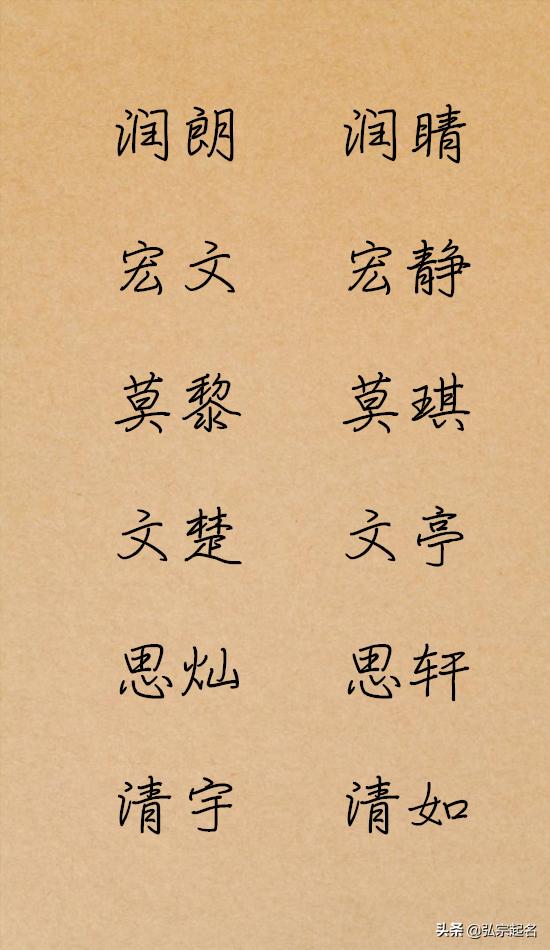 润朗 润晴
宏文 宏静
莫黎 莫琪
文楚 文亭
思灿 思轩
清宇 清如
头条 @弘宗起名